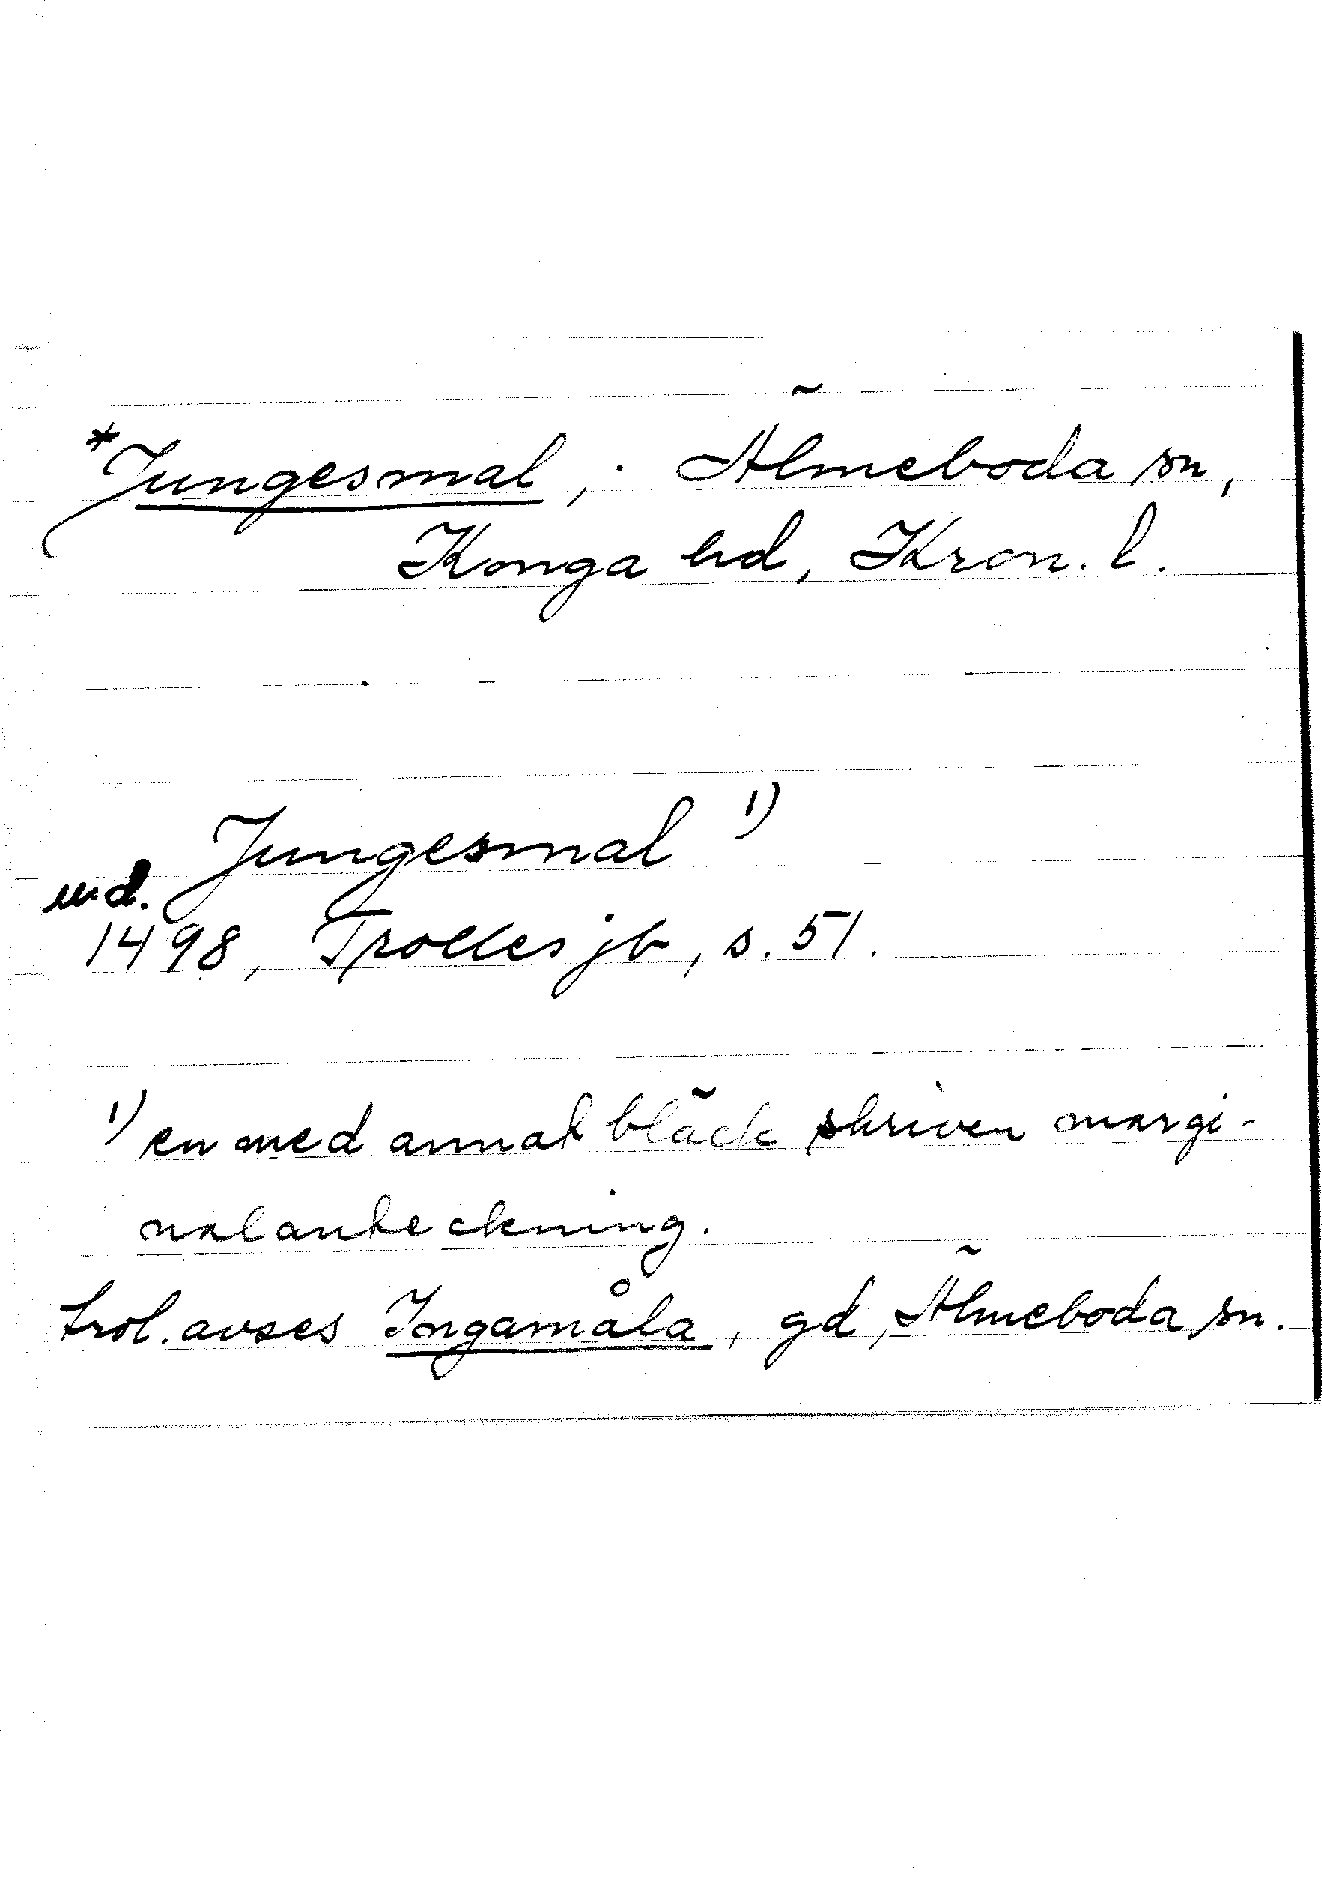 *Jungesmal, . Älmeboda sn,
Konga hd, Kron. l.
Jungesmal 1)
u.d.
1498, Trolles jb, s. 51.
1) en med annat bläck skriven margi-
nalanteckning.
trol. avses Ingamåla, gd, Älmeboda sn.